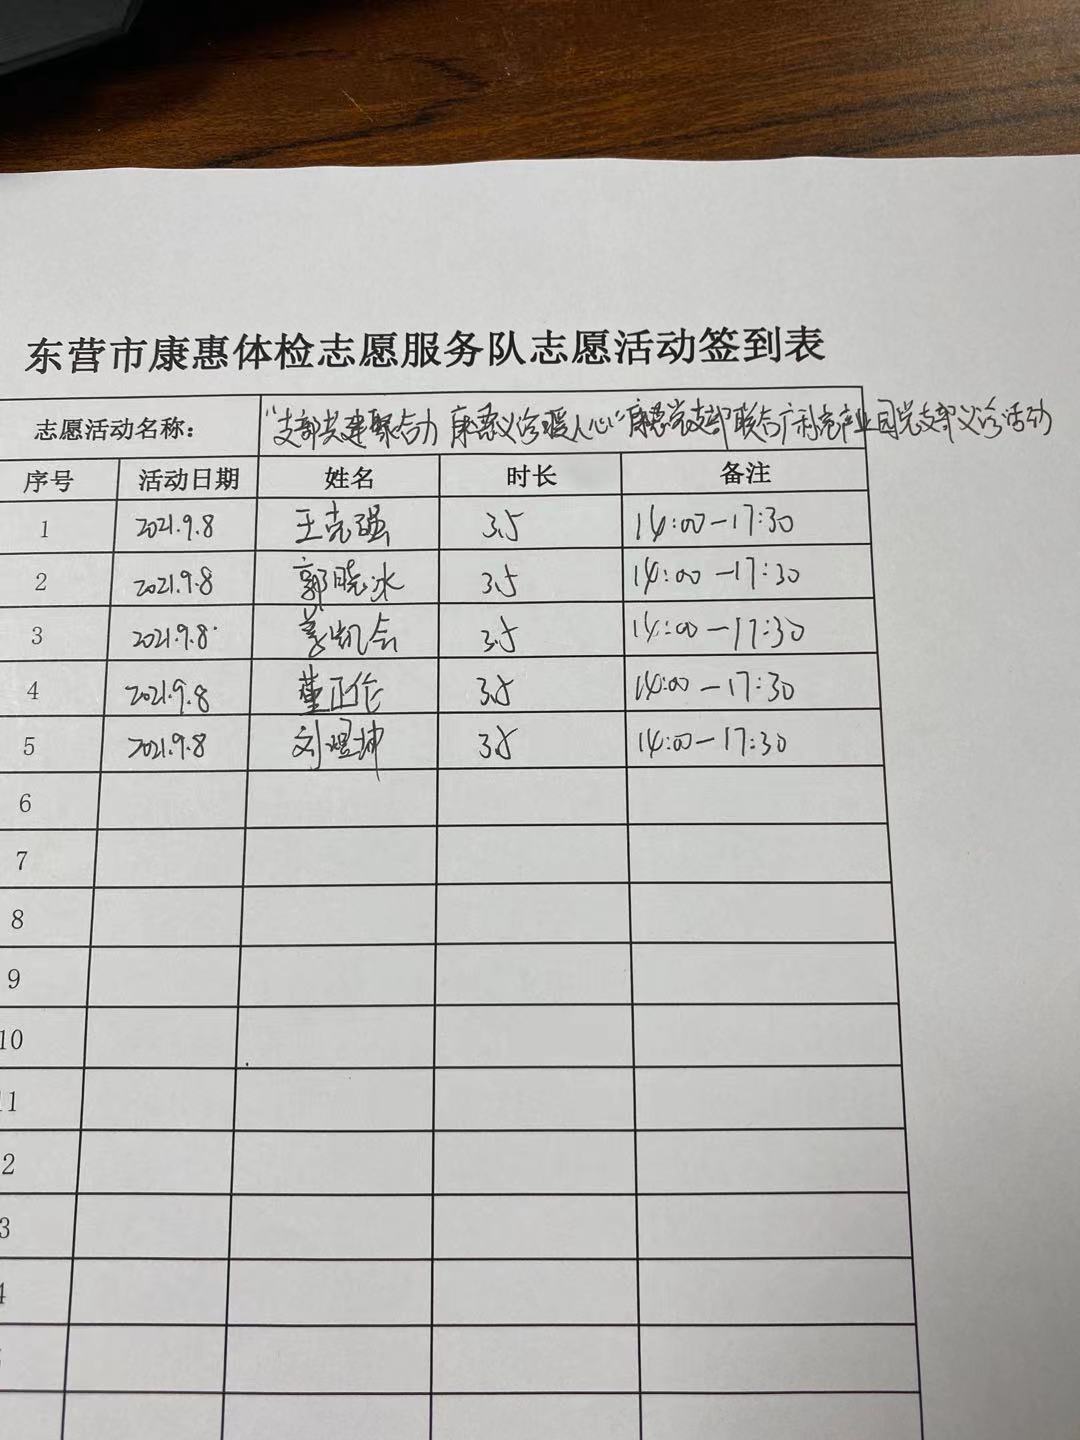 东营市康惠体检志愿服务队志愿活动签到表
志愿活动名称： "支部共建聚合力 康惠义诊暖人心"康惠党支部联合广利港产业园党支部义诊活动
序号 活动日期 姓名 时长 备注
1 2021.9.8 王克强 3.5 14:00-17:30
2 2021.9.8 郭晓冰 3.5 14:00-17:30
3 2021.9.8 姜凯会 3.5 14:00-17:30
4 2021.9.8 董正伦 3.5 14:00-17:30
5 2021.9.8 刘煜坤 3.5 14:00-17:30
6
7
8
9
10
11
2
3
4